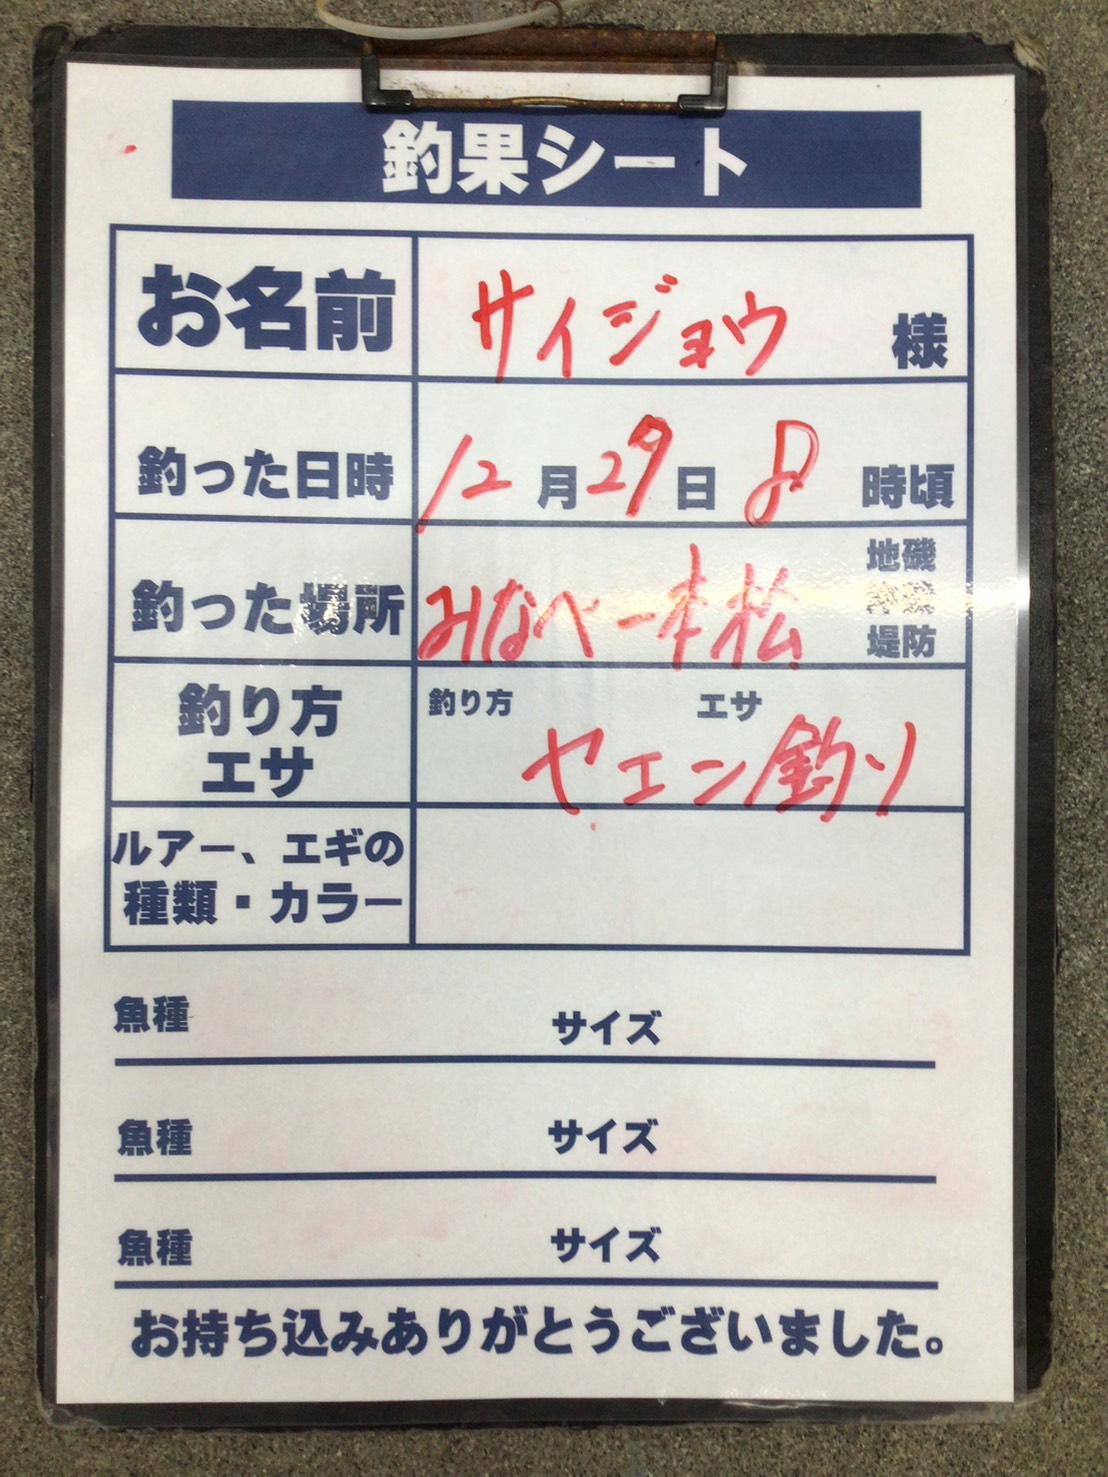 釣果シート
お名前 サイジョウ 様
釣った日時 12月29日 8時頃
地磯
釣った場所 みなべ一本松
堤防
釣り方 釣り方 エサ
エサ ヤエン釣り
ルアー、エギの
種類・カラー
魚種 サイズ
魚種 サイズ
魚種 サイズ
お持ち込みありがとうございました。